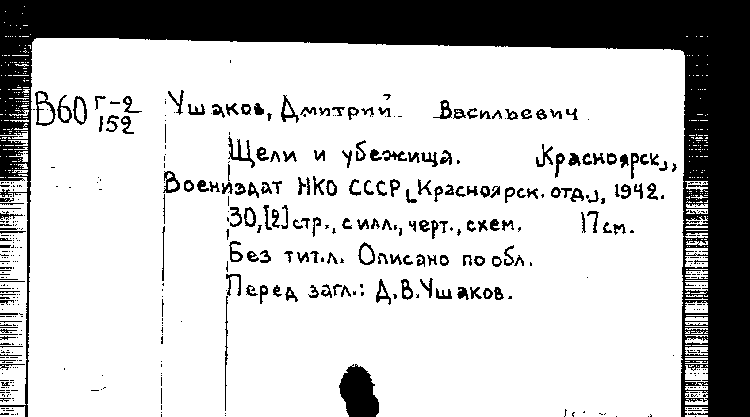 В60 Г-2/152 Ушаков, Дмитрий Васильевич
Щели и убежища. [Красноярск],
Воениздат НКО СССР [Красноярск. отд.], 1942.
30,[2] стр., с илл., черт., схем. 17 см.
Без тит.л. Описано по обл.
Перед загл.: Д.В.Ушаков.